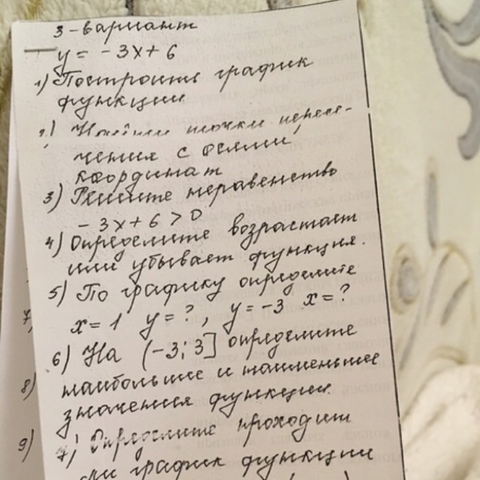 3-вариант
y = -3x+6
1) Постройте график
функции
2) Найти точки пересе-
чения с осями
координат
3) Решите неравенство
-3x+6>0
4) Определите возрастает
или убывает функция.
5) По графику определите
x=1 y=?, y=-3 x=?
6) На (-3; 3] определите
наибольшие и наименьшие
значения функции.
7) Определите проходит
ли график функции
7)
8)
9)